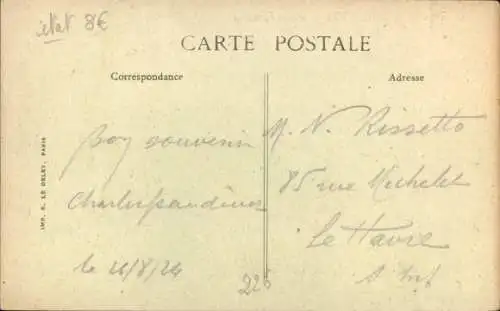 état 8€
CARTE POSTALE
Correspondance
Adresse
Bon souvenir
Charles
le 26/8/24
M. N. Rissetto
85 rue Michelet
Le Havre
S. Inf
225
IMP. E. LE DELEY, PARIS